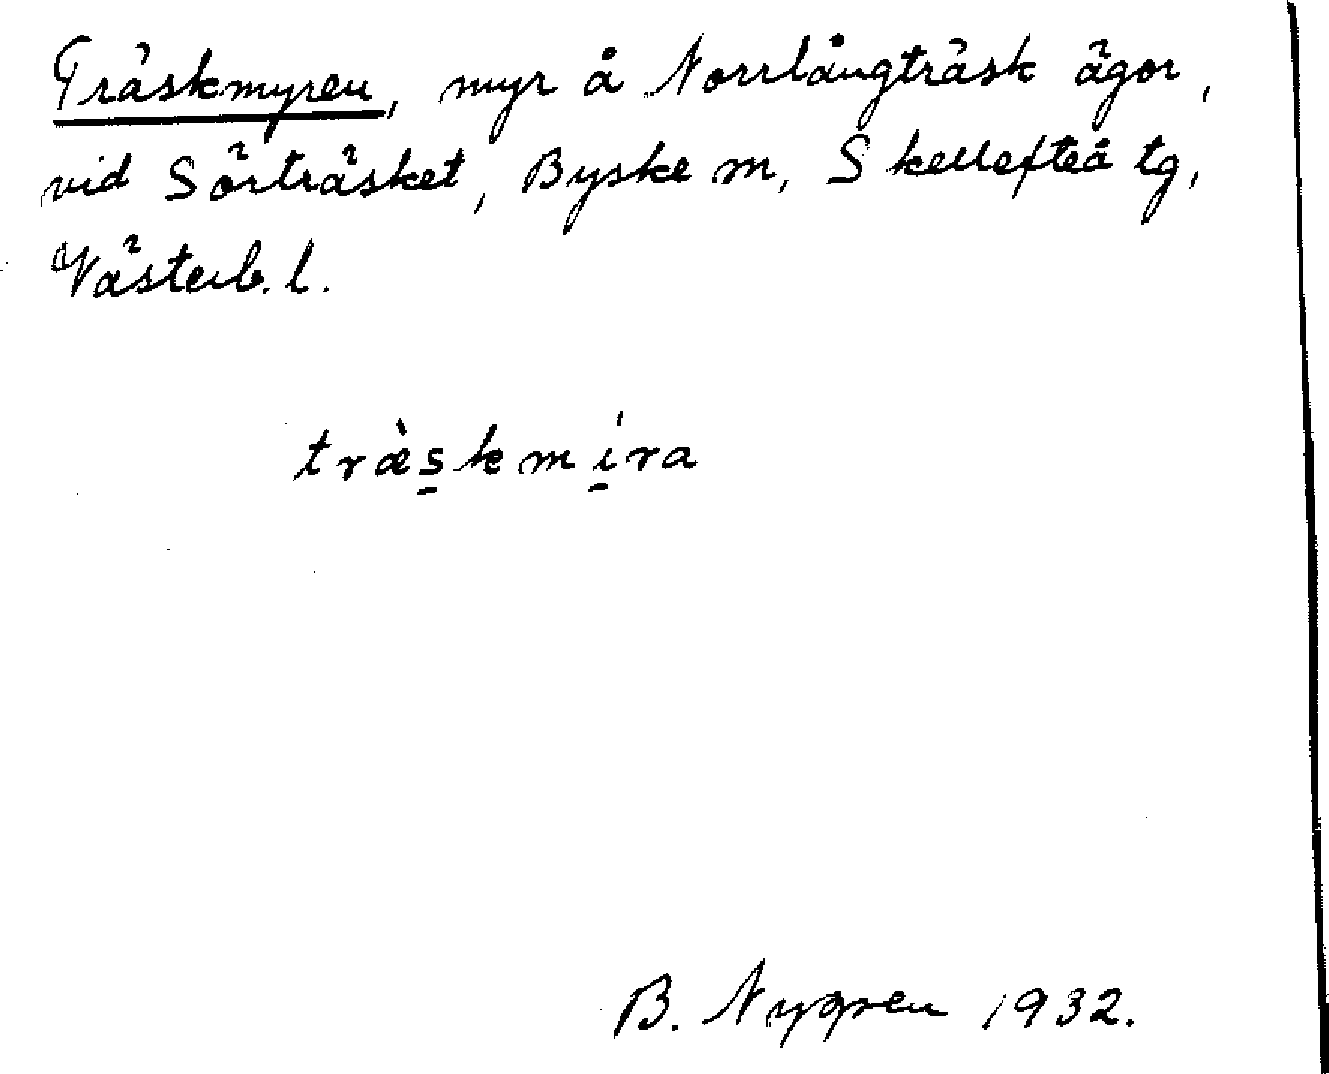 Träskmyren, myr å Norrlångträsk ägor,
vid Sörträsket, Byske sn, Skellefteå tg,
Västerb. l.
træ̀s̱kmí̱ra
B. Nygren 1932.